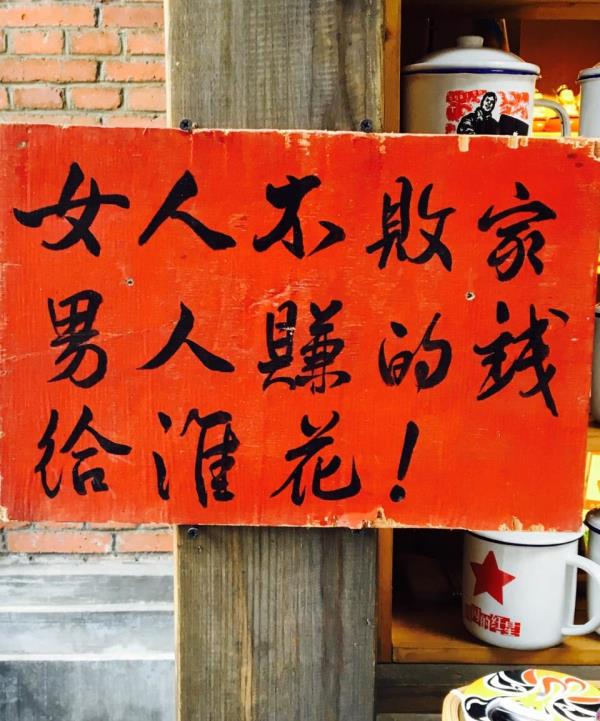 女人不敗家
男人賺的錢
给谁花！